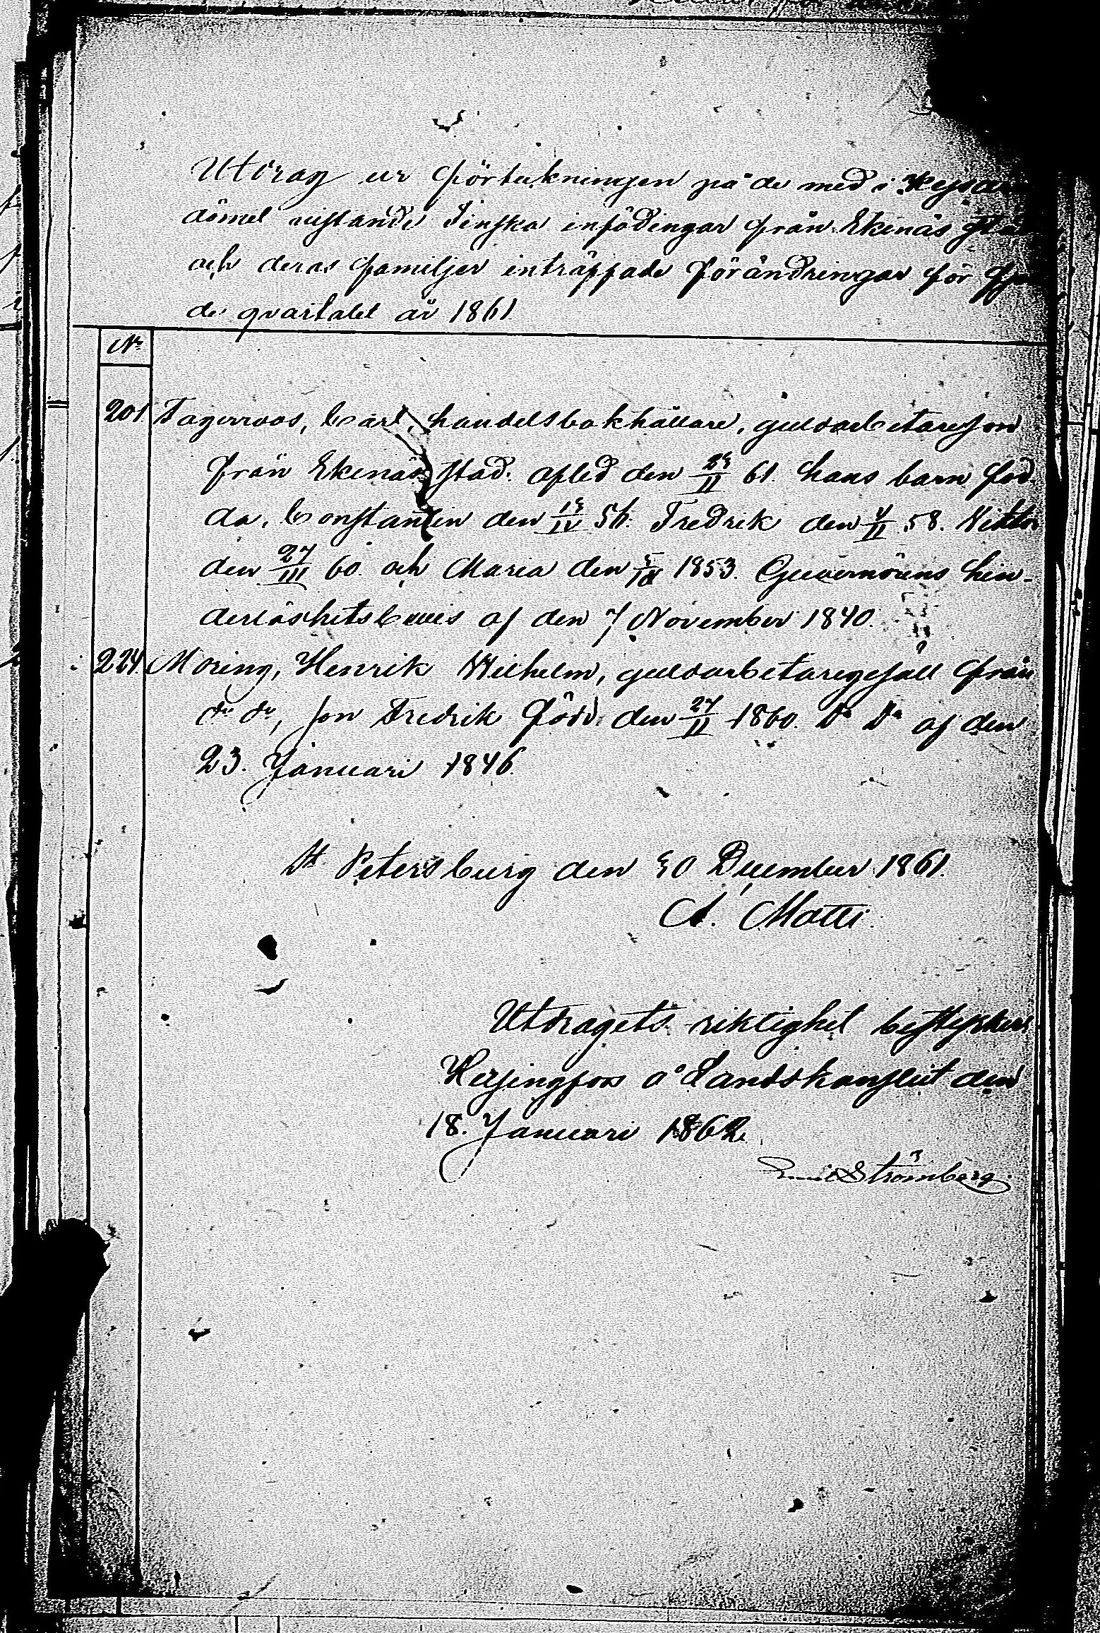 Utdrag ur förtekningen på de med i Kejsar
dömet vistande Finska infödingar från Ekenäs
och deras familjer inträffade förändringar för
de quartalet år 1861
No
201. Fagerroos, Carl, handelsbokhållare, guldarbetareson
från Ekenäs stad. afled den II 61. hans barn föd
da, Constantin den 15/IV 56. Fredrik den 4/II 58. Viktor
den 27/III 60. och Maria den 1853. Guvernörens hin-
derlöshetsbevis af den 7 November 1840.
224. Moring, Henrik Wilhelm, guldarbetaregesäll från
do do, son Fredrik född den 27/II 1860. Do Do af den
23. Januari 1846.
St Petersburg den 30 December 1861.
A. Matti.
Utdragets riktighet bestyrker
Helsingfors å Landskansliet den
18. Januari 1862.
Emil Strömberg.